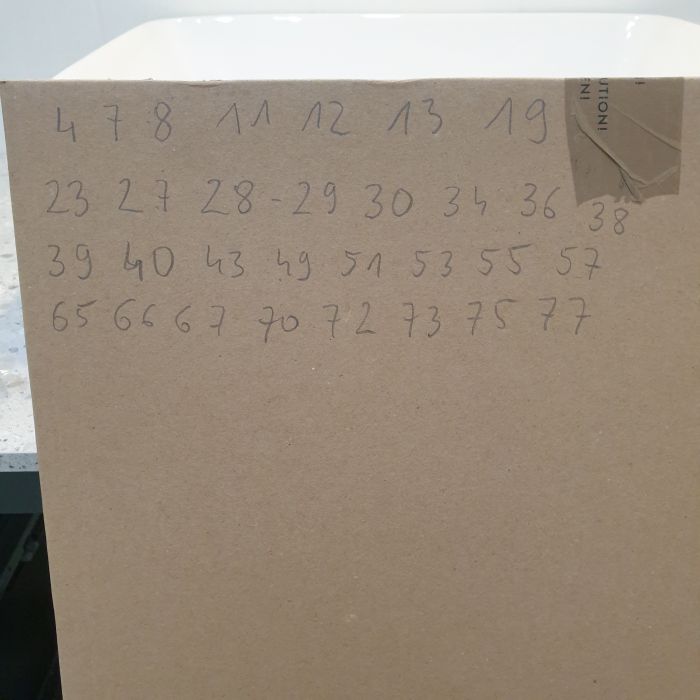 4 7 8 11 12 13 19
23 27 28 - 29 30 34 36 38
39 40 43 49 51 53 55 57
65 66 67 70 72 73 75 77
UTION!
EN!